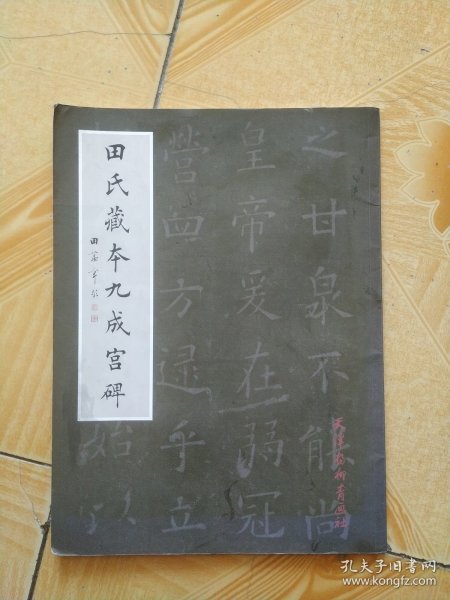 田氏藏本九成宫碑
之甘泉不能尚
皇帝爰在弱冠
營四方逮乎立
始以
天津杨柳青画社
孔夫子旧书网
www.kongfz.com